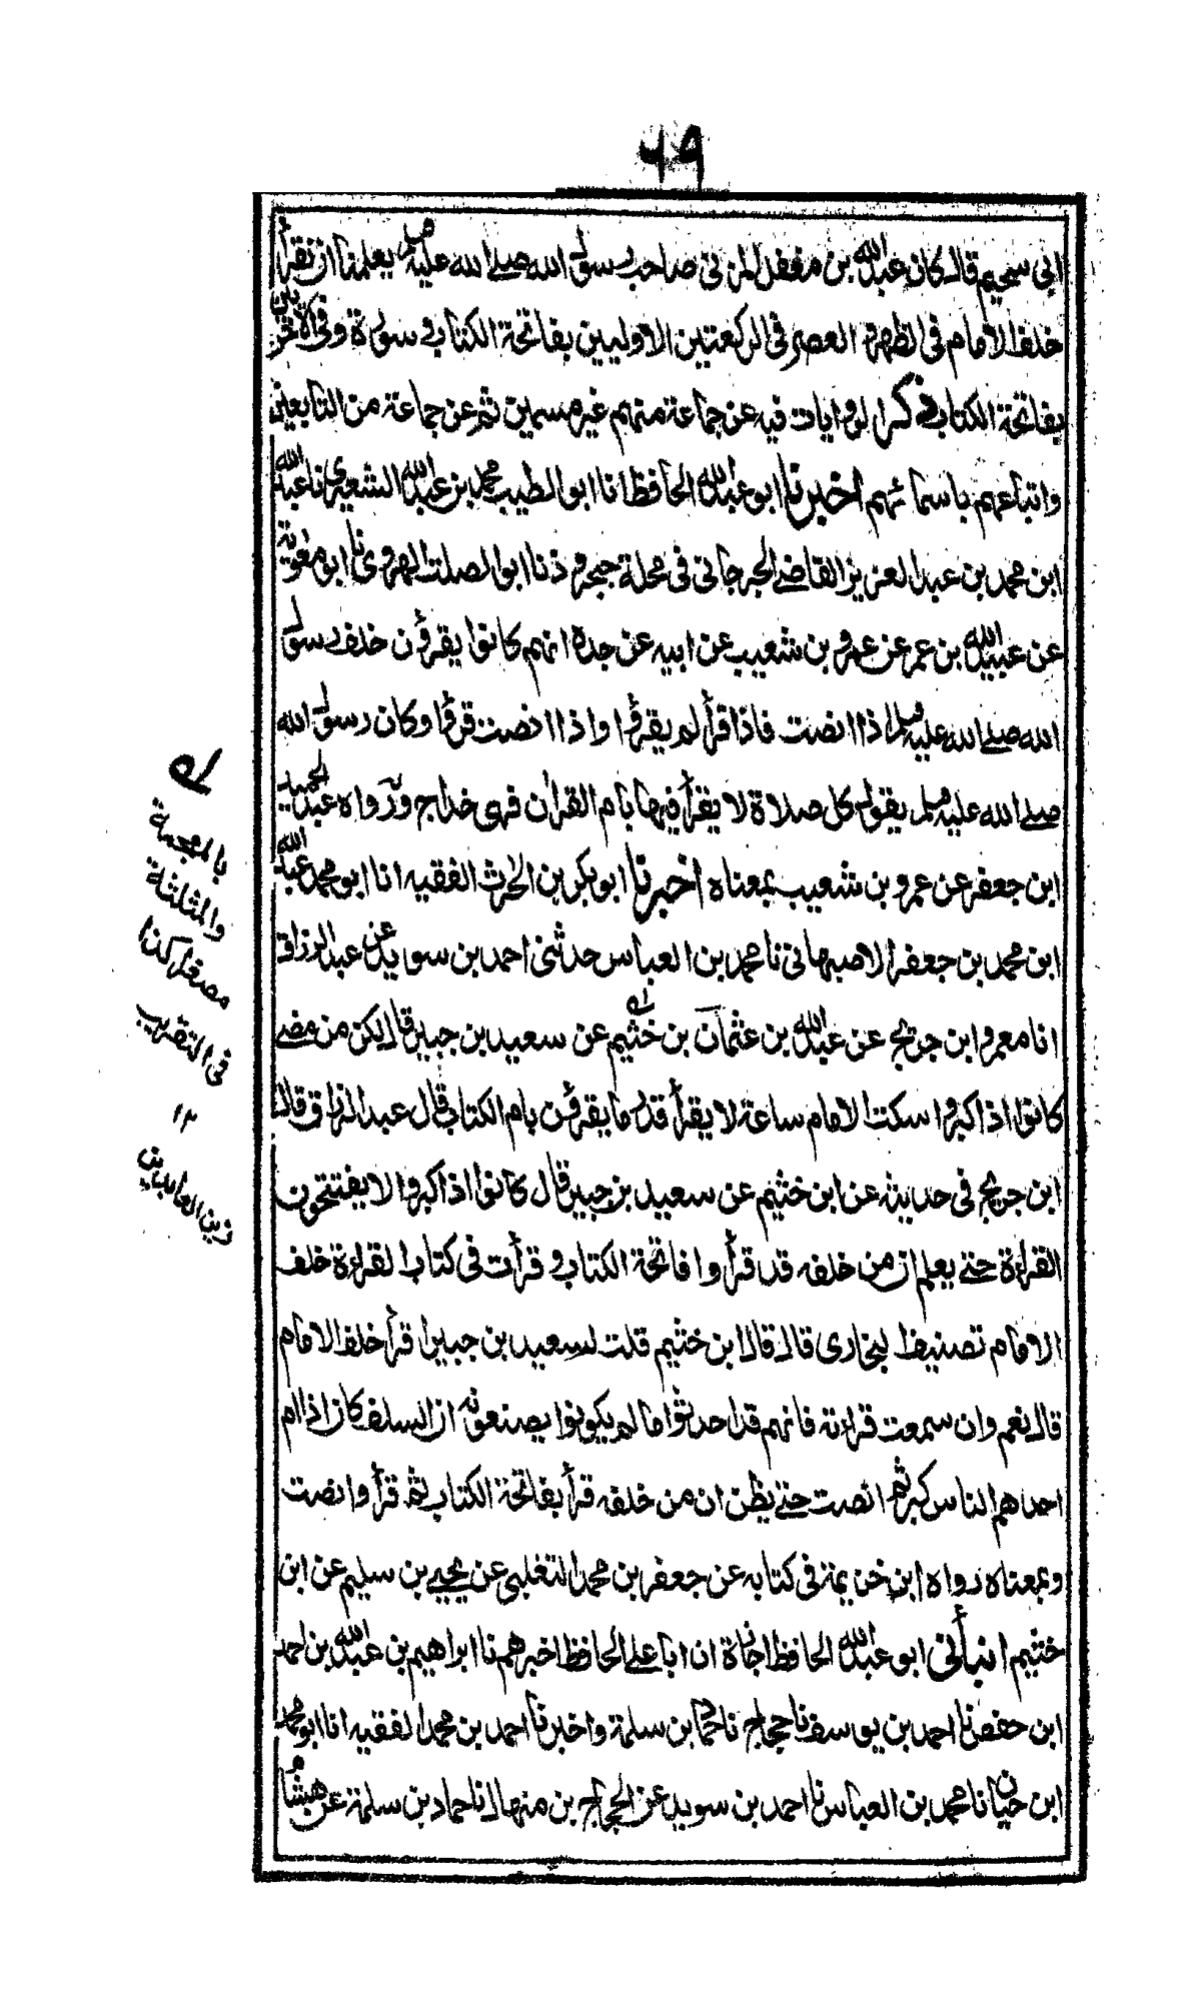 ٦٩
ابى سحيم قال كان عبد الله بن مغفل المزنى صاحب رسول الله صلے الله عليه وسلم يعلمنا ان نقرأ
خلف الامام فى الظهر و العصر فى الركعتين الاوليين بفاتحة الكتاب و سورة و فى الاخريين
بفاتحة الكتاب ذكر الروايات فيه عن جماعة منهم غير مسمين ثم عن جماعة من التابعين
و اتباعهم باسمائهم اخبرنا ابو عبد الله الحافظ انا ابو الطيب محمد بن عبد الله الشعيرى نا عبد الله
ابن محمد بن عبد العزيز القاضے الجرجانى فى محلة جبجروذ نا ابو الصلت الهروى نا ابو معوية
عن عبيد الله بن عمر عن عمرو بن شعيب عن ابيه عن جده انهم كانوا يقرؤن خلف رسول
الله صلے الله عليه وسلم اذا انصت فاذا قرأ لم يقرؤا و اذا انصت قرؤا و كان رسول الله
صلے الله عليه وسلم يقول كل صلاة لا يقرأ فيها بام القران فهى خداج و رواه عبد الحميد
ابن جعفر عن عمرو بن شعيب بمعناه اخبرنا ابو بكر بن الحرث الفقيه انا ابو محمد عبد الله
ابن محمد بن جعفر الاصبهانى نا محمد بن العباس حدثنى احمد بن سويد عن عبد الرزاق
انا معمر و ابن جريج عن عبد الله بن عثمان بن خثيم عن سعيد بن جبير قال لكن من مضے
كانوا اذا كبروا سكت الامام ساعة لا يقرأ قدر ما يقرؤن بام الكتاب قال عبد الرزاق قال
ابن جريج فى حديثه عن ابن خثيم عن سعيد بن جبير قال كانوا اذا كبروا لا يفتتحون
القراءة حتے يعلم ان من خلفه قد قرأوا فاتحة الكتاب و قرأت فى كتاب القراءة خلف
الامام تصنيف البخارى قال قال ابن خثيم قلت لسعيد بن جبير اقرأ خلف الامام
قال نعم و ان سمعت قراءته فانهم قد احدثوا ما لم يكونوا يصنعونه ان السلف كان اذا ام
احدهم الناس كبر ثم انصت حتے يظن ان من خلفه قرأ بفاتحة الكتاب ثم قرأ و انصت
و بمعناه رواه ابن خزيمة فى كتابه عن جعفر بن محمد التغلبى عن يحيے بن سليم عن ابن
خثيم انبأنى ابو عبد الله الحافظ اجازة ان ابا على الحافظ اخبرهم نا ابراهيم بن عبد الله بن احمد
ابن حفص نا احمد بن يوسف نا حجاج نا حماد بن سلمة و اخبرنا احمد بن محمد الفقيه انا ابو محمد
ابن حيان نا محمد بن العباس نا احمد بن سويد عن الحجاج بن منهال نا حماد بن سلمة عن هشام
بالمعجمة
والمثلثة
مصغر كذا
فى التقريب
١٢
زين العابدين